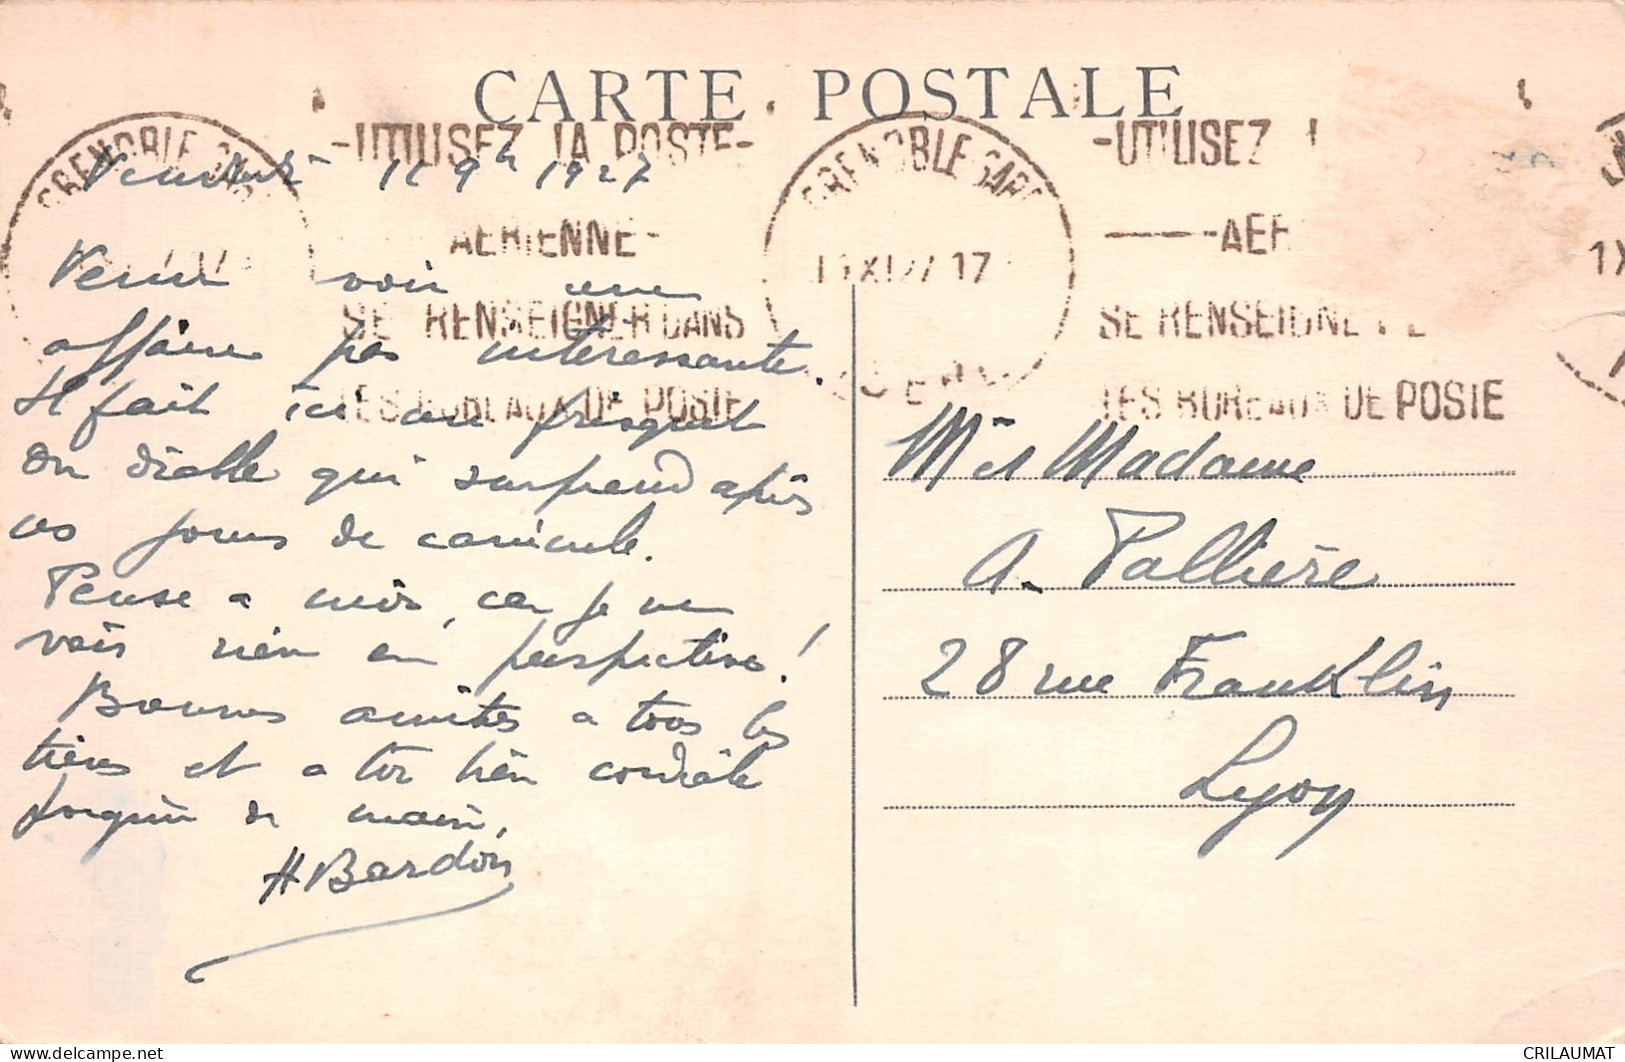 CARTE POSTALE
GRENOBLE GARE
-UTILISEZ LA POSTE-
AERIENNE-
SE RENSEIGNER DANS
LES BUREAUX DE POSTE
GRENOBLE GARE
XI 27 17
-UTILISEZ
AER
SE RENSEIGNE
LES BUREAUX DE POSTE
9h 1927
Venu voir une
affaire pas intéressante.
Il fait ici un frisquet
du diable qui surprend après
ces jours de canicule.
Pense a moi, car je ne
vois rien en perspective !
Bonnes amitiés a tous les
tiens et a toi bien cordiale
poignée de main,
H Bardon
Mr et Madame
A. Pallière
28 rue Franklin
Lyon
delcampe.net
CRILAUMAT